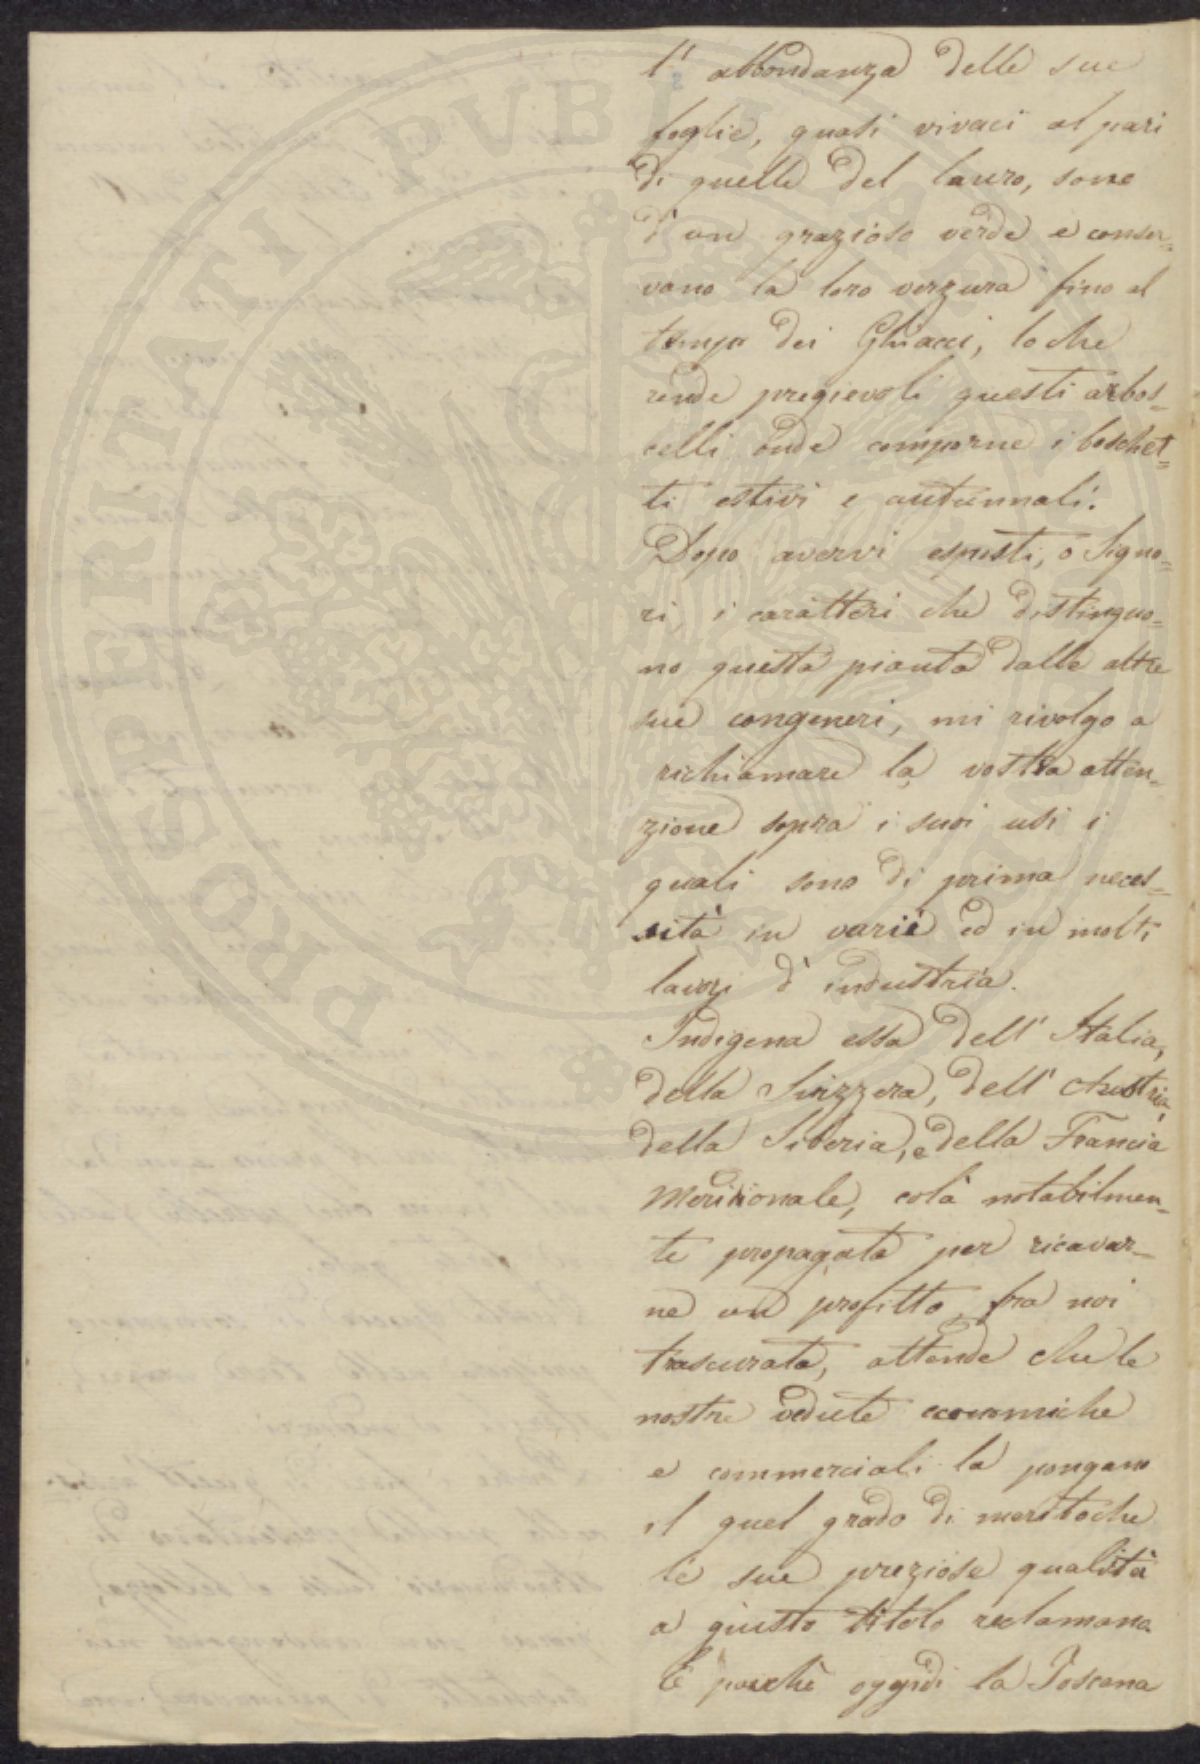 l'abbondanza delle sue
foglie, quasi vivaci al pari
di quelle del lauro, sono
d'un grazioso verde e conser=
vano la loro verzura fino al
tempo dei Ghiacci, lo che
rende pregievoli questi arbos=
celli onde comporne i boschet=
ti estivi e autunnali.
Dopo avervi esposti, o Signo=
ri, i caratteri che distinguo=
no questa pianta dalle altre
sue congeneri, mi rivolgo a
richiamare la vostra atten=
zione sopra i suoi usi i
quali sono di prima neces=
sità in varie ed in molti
lavori d'industria.
Indigena essa dell'Italia,
della Svizzera, dell'Austria,
della Siberia, e della Francia
Meridionale, colà notabilmen=
te propagata per ricavar=
ne un profitto, fra noi
trascurata, attende che le
nostre vedute economiche
e commerciali la pongano
il quel grado di merito che
le sue preziose qualità
a giusto titolo reclamano.
E poichè oggidì la Toscana
PROSPERITATI PUBLICAE